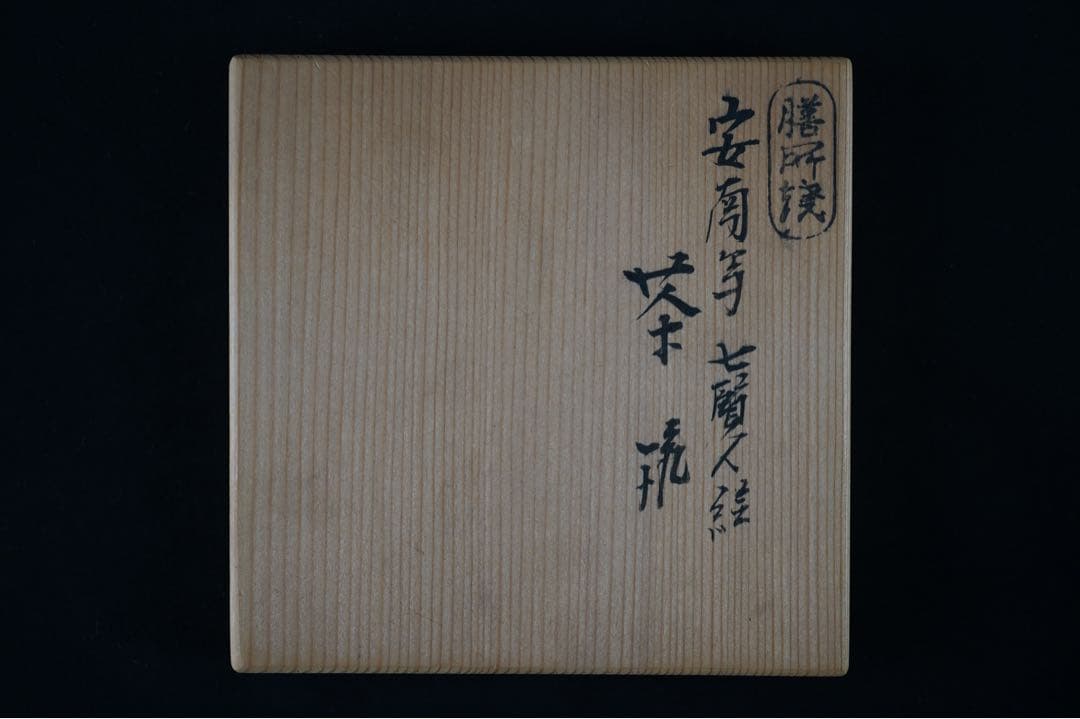 膳所焼
安南写 七賢人絵
茶碗